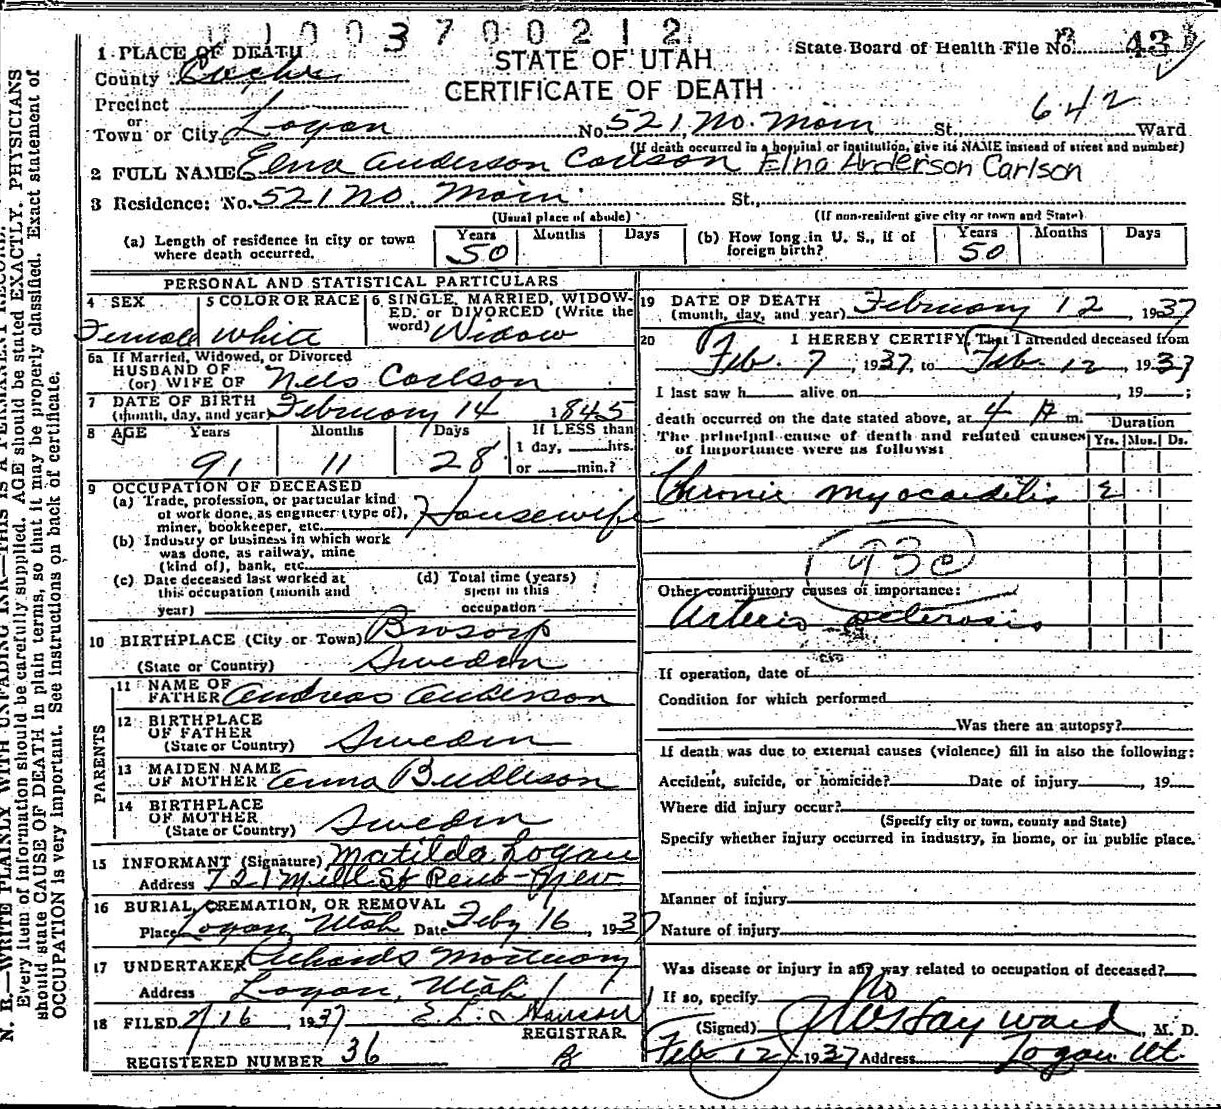 0 1 0 0 3 7 0 0 2 1 2
State Board of Health File No. 43
STATE OF UTAH
CERTIFICATE OF DEATH
1 PLACE OF DEATH
County Cache
Precinct
or
Town or City Logan No. 521 No. Main St. Ward
642
(If death occurred in a hospital or institution, give its NAME instead of street and number)
2 FULL NAME Elna Anderson Carlson Elna Anderson Carlson
3 Residence: No. 521 No. Main St.,
(Usual place of abode) (If non-resident give city or town and State)
(a) Length of residence in city or town where death occurred. Years 50 Months Days
(b) How long in U. S., if of foreign birth? Years 50 Months Days
PERSONAL AND STATISTICAL PARTICULARS
4 SEX Female
5 COLOR OR RACE White
6 SINGLE, MARRIED, WIDOWED, or DIVORCED (Write the word) Widow
6a If Married, Widowed, or Divorced
HUSBAND OF
(or) WIFE OF Nels Carlson
7 DATE OF BIRTH
(month, day, and year) February 14 1845
8 AGE Years 91 Months 11 Days 28 If LESS than 1 day, hrs. or min.?
9 OCCUPATION OF DECEASED
(a) Trade, profession, or particular kind of work done, as engineer (type of), miner, bookkeeper, etc. Housewife
(b) Industry or business in which work was done, as railway, mine (kind of), bank, etc.
(c) Date deceased last worked at this occupation (month and year)
(d) Total time (years) spent in this occupation
10 BIRTHPLACE (City or Town)
(State or Country) Sweden
PARENTS
11 NAME OF FATHER Andreas Anderson
12 BIRTHPLACE OF FATHER
(State or Country) Sweden
13 MAIDEN NAME OF MOTHER Anna
14 BIRTHPLACE OF MOTHER
(State or Country) Sweden
15 INFORMANT (Signature) Matilda Logan
Address 721 Mill St Reno - Nev.
16 BURIAL, CREMATION, OR REMOVAL
Place Logan, Utah Date Feby 16, 1937
17 UNDERTAKER Richards Mortuary
Address Logan, Utah
18 FILED 2/16, 1937 E. L. Hanson
REGISTRAR.
REGISTERED NUMBER 36
19 DATE OF DEATH
(month, day, and year) February 12, 1937
20 I HEREBY CERTIFY, That I attended deceased from
Feb. 7, 1937, to Feb. 12, 1937
I last saw h alive on , 19 ;
death occurred on the date stated above, at 4 A m.
The principal cause of death and related causes of importance were as follows:
Duration
Yrs. Mos. Ds.
Chronic myocarditis 2
93c
Other contributory causes of importance:
Arterio sclerosis
If operation, date of
Condition for which performed
Was there an autopsy?
If death was due to external causes (violence) fill in also the following:
Accident, suicide, or homicide? Date of injury , 19
Where did injury occur?
(Specify city or town, county and State)
Specify whether injury occurred in industry, in home, or in public place.
Manner of injury
Nature of injury
Was disease or injury in any way related to occupation of deceased?
If so, specify No
(Signed) J W Hayward, M. D.
Feb 12, 1937 Address Logan Ut.
N. B.—WRITE PLAINLY WITH UNFADING INK—THIS IS A PERMANENT RECORD.
Every item of information should be carefully supplied. AGE should be stated EXACTLY. PHYSICIANS
should state CAUSE OF DEATH in plain terms, so that it may be properly classified. Exact statement of
OCCUPATION is very important. See instructions on back of certificate.